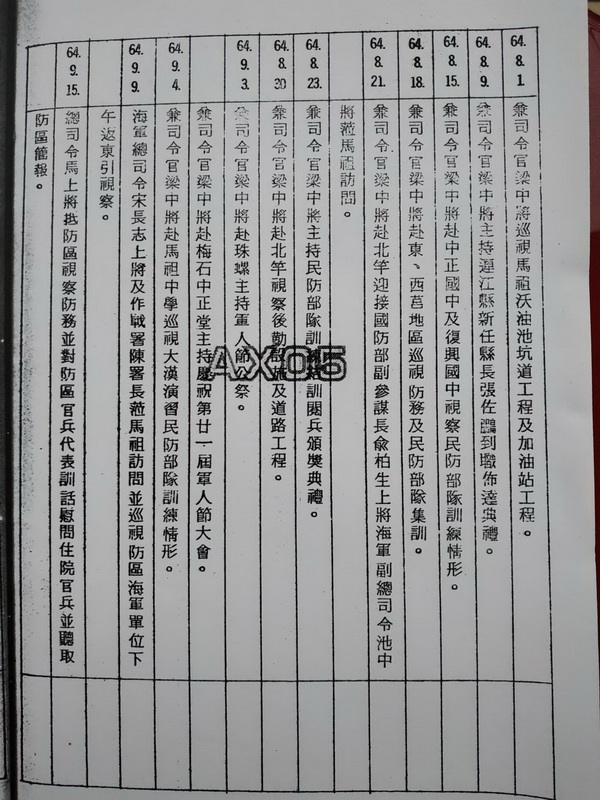 64.8.1. 兼司令官梁中將巡視馬祖沃油池坑道工程及加油站工程。
64.8.9. 兼司令官梁中將主持連江縣新任縣長張佐鵬到職佈達典禮。
64.8.15. 兼司令官梁中將赴中正國中及復興國中視察民防部隊訓練情形。
64.8.18. 兼司令官梁中將赴東、西莒地區巡視防務及民防部隊集訓。
64.8.21. 兼司令官梁中將赴北竿迎接國防部副參謀長俞柏生上將海軍副總司令池中
將蒞馬祖訪問。
64.8.23. 兼司令官梁中將主持民防部隊訓練結訓閱兵頒獎典禮。
64.8.30 兼司令官梁中將赴北竿視察後勤設施及道路工程。
64.9.3. 兼司令官梁中將赴珠螺主持軍人節公祭。
兼司令官梁中將赴梅石中正堂主持慶祝第廿一屆軍人節大會。
64.9.4. 兼司令官梁中將赴馬祖中學巡視大漢演習民防部隊訓練情形。
64.9.9. 海軍總司令宋長志上將及作戰署陳署長蒞馬祖訪問並巡視防區海軍單位下
午返東引視察。
64.9.15. 總司令馬上將抵防區視察防務並對防區官兵代表訓話慰問住院官兵並聽取
防區簡報。
AX05